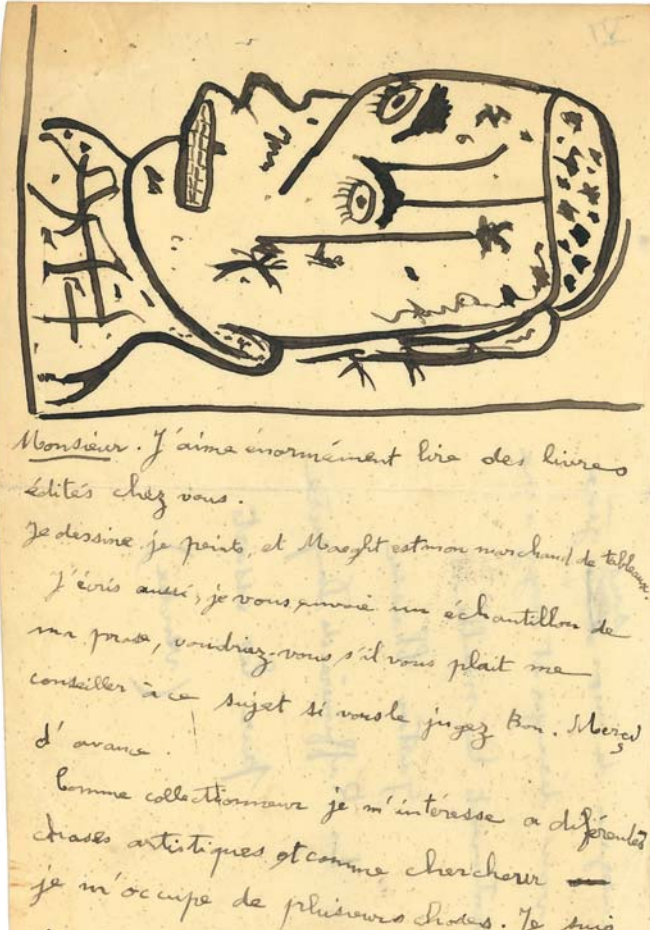 Monsieur. J'aime énormément lire des livres
édités chez vous.
Je dessine, je peints, et Maeght est mon marchand de tableaux.
J'écris aussi, je vous envoie un échantillon de
ma prose, voudriez-vous s'il vous plait me
conseiller à ce sujet si vous le jugez Bon. Merci
d'avance.
Comme collectionneur je m'intéresse a diférentes
choses artistiques et comme chercheur
je m'occupe de plusieurs choses. Je suis